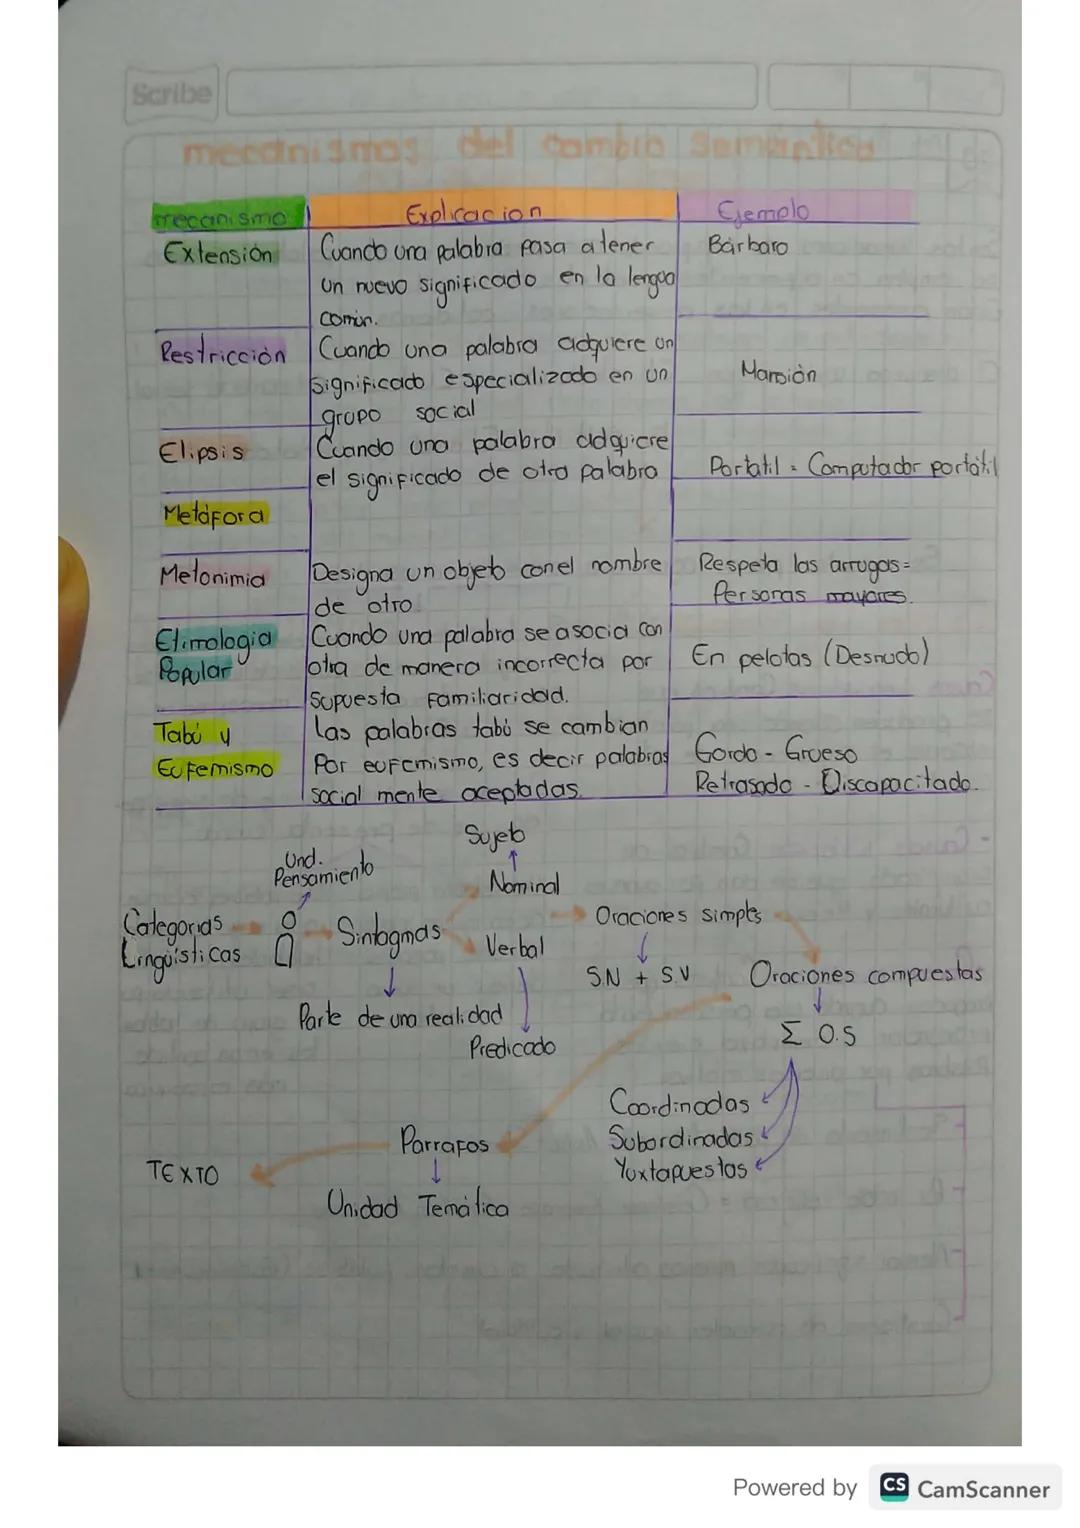 Scribe
mecanismos del cambio Semántico
mecanismo Explicacion Ejemplo
Extensión
Cuando una palabra pasa a tener
un nuevo significado en la lengua
común.
Bárbaro
Restricción
Cuando una palabra adquiere un
significado especializado en un
grupo social
Mansión
Elipsis
Cuando una palabra adquiere
el significado de otra palabra
Portatil = Computador portátil
Metáfora
Metonimia
Designa un objeto con el nombre
de otro
Respeta las arrugas =
Personas mayores.
Etimologia
Popular
Cuando una palabra se asocia con
otra de manera incorrecta por
supuesta familiaridad.
En pelotas (Desnudo)
Tabú y
Eufemismo
Las palabras tabú se cambian
Por eufemismo, es decir palabras
social mente aceptadas.
Gordo - Grueso
Retrasado - Discapacitado.
Sujeto
Und.
Pensamiento
Nominal
Categorias
Lingüisticas
Sintagmas
Verbal
Oraciones simples
S.N + S.V
Oraciones compuestas
Parte de una realidad
Predicado
Σ O.S
Coordinadas
Subordinadas
Yuxtapuestas
Parrafos
TEXTO
Unidad Temática
Powered by CS CamScanner